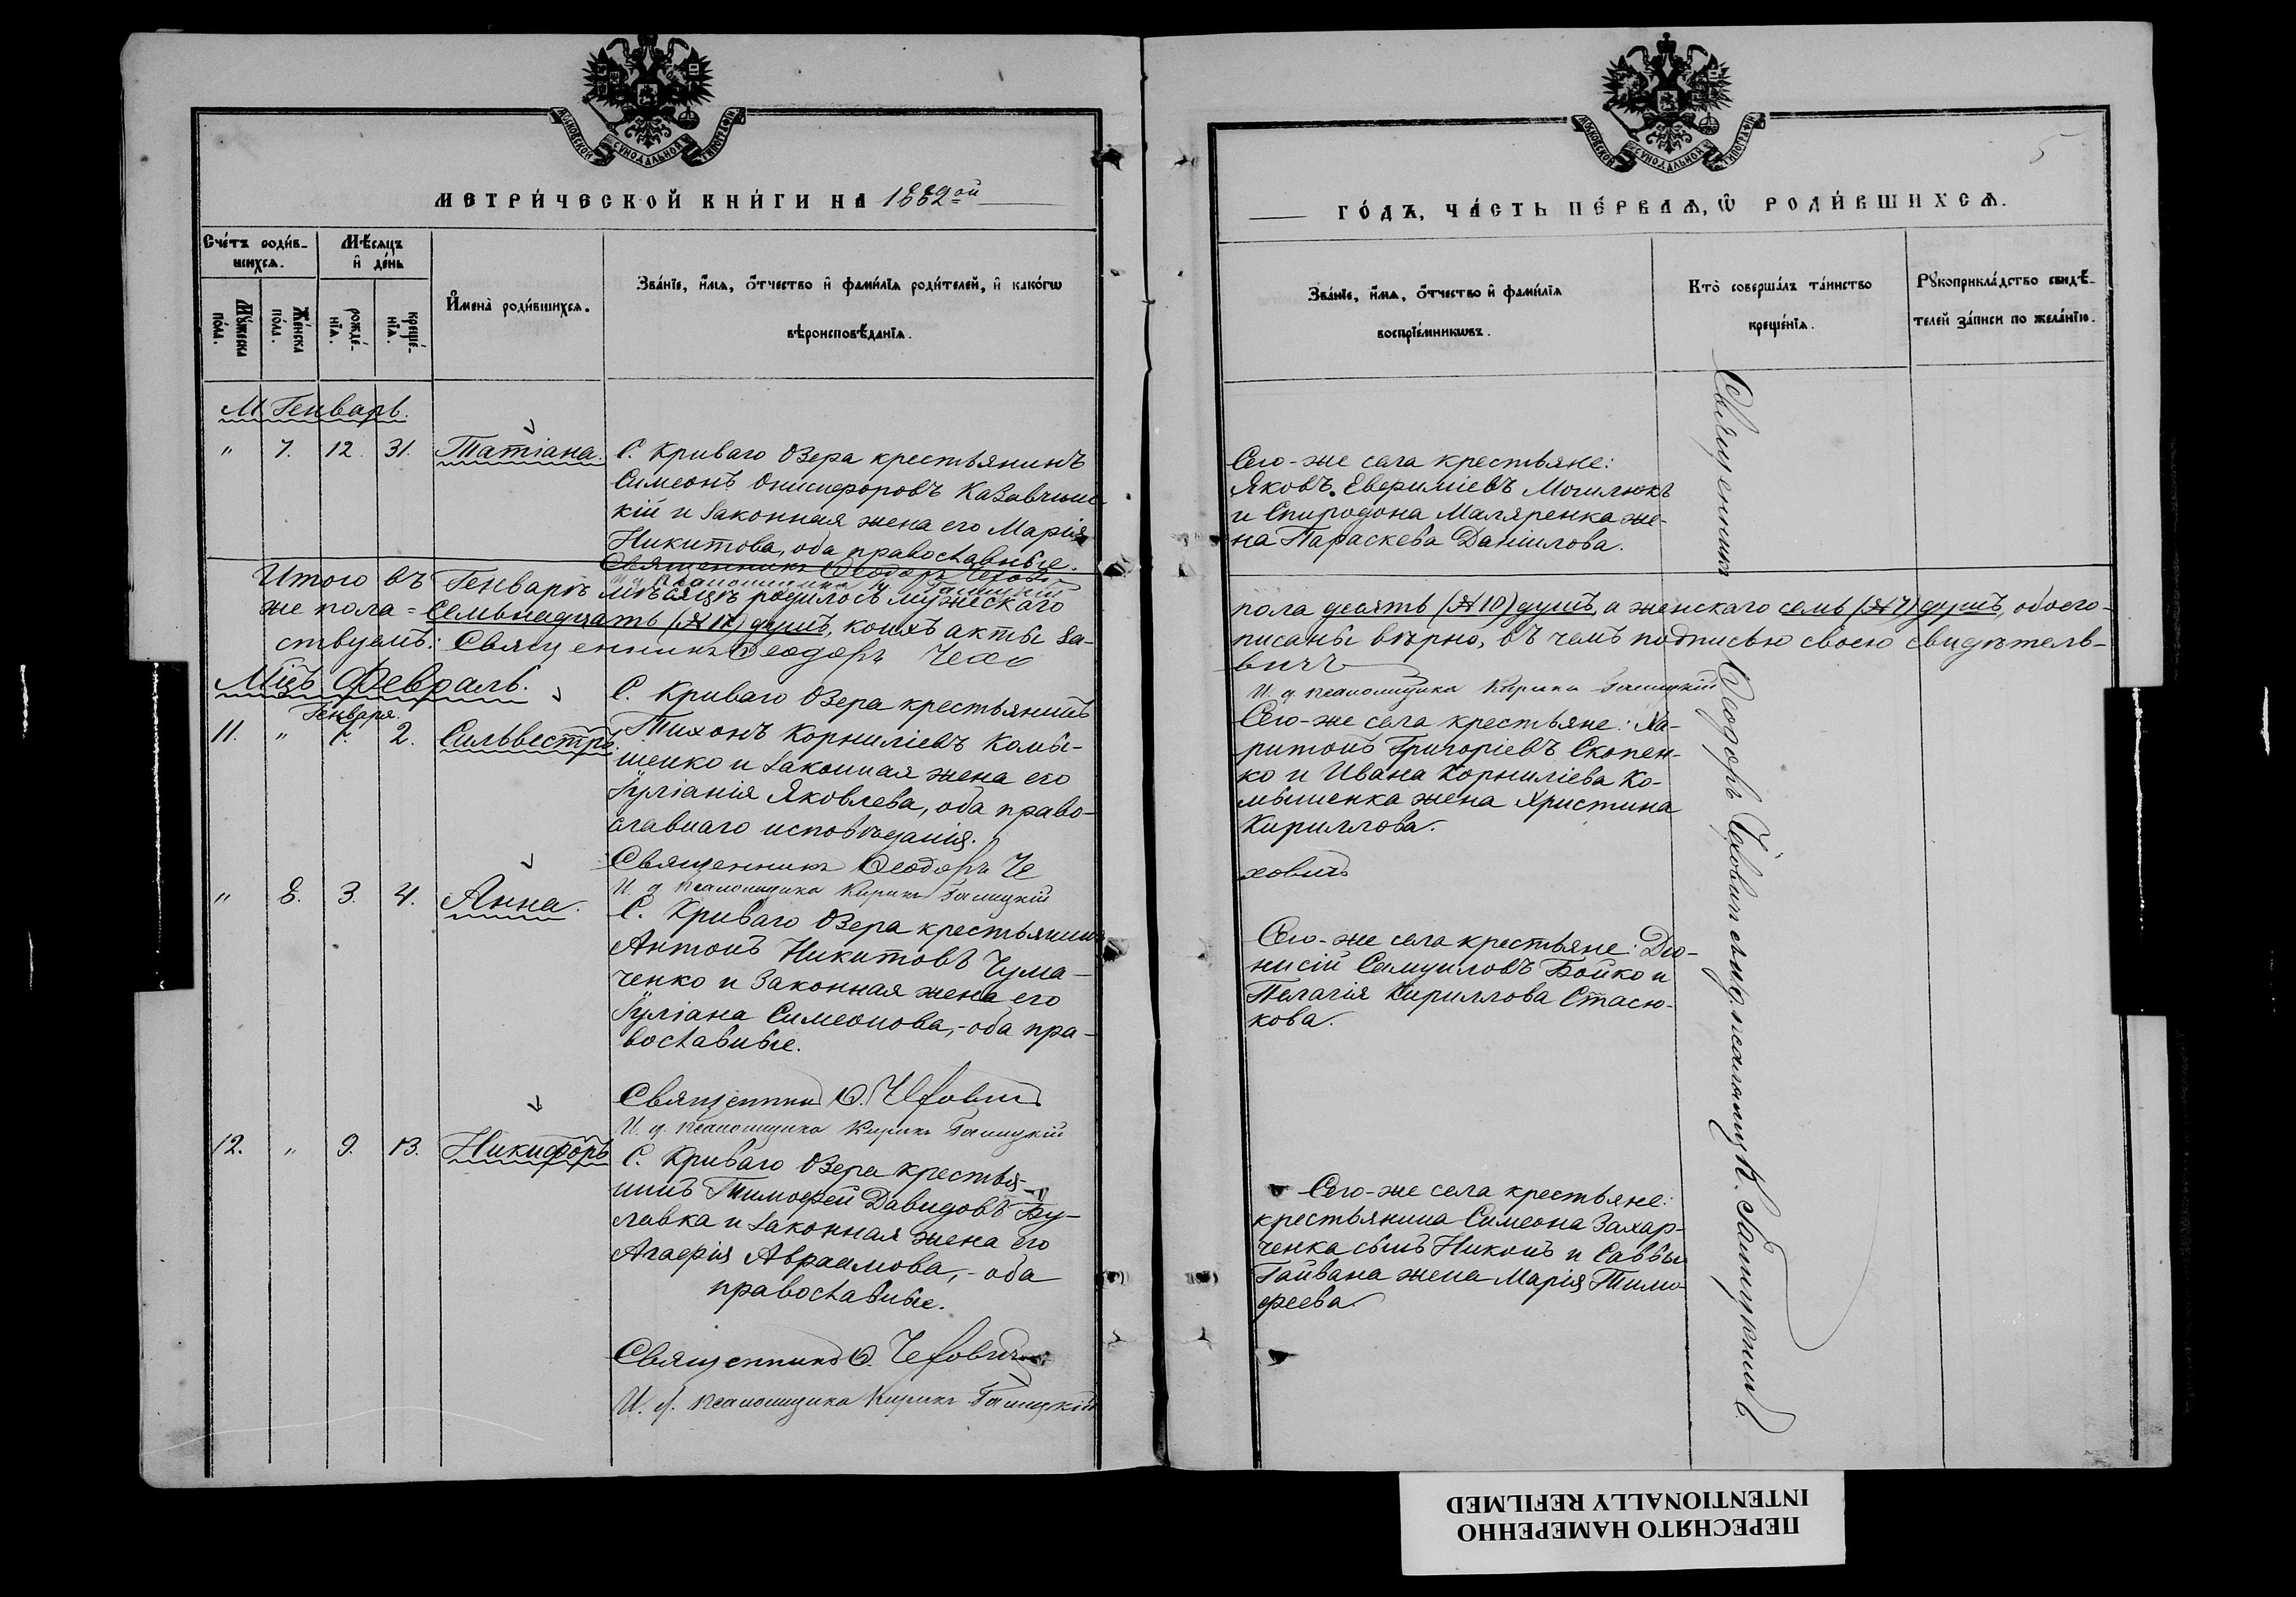 МОСКОВСКОЙ СУНОДАЛЬНОЙ ТИПОГРАФІИ
МЕТРИ́ЧЕСКОЙ КНИ́ГИ НА 1882ой
Сче́тъ роди́в-
шихсѧ.
Мѣ́сѧцъ
и҆ де́нь
Мꙋ́жеска
по́ла.
Же́нска
по́ла.
рожде́-
нїѧ.
креще́-
нїѧ.
И҆мена̀ роди́вшихсѧ.
Зва́нїе, и҆́мѧ, ѻ҆́тчество и҆ фами́лїѧ роди́телей, и҆ како́гѡ
вѣроисповѣ́данїѧ.
М. Генварь.
" 7. 12. 31. Татіана.
С. Криваго Озера крестьянинъ
Симеонъ Онисифоровъ Казавчинс-
кій и законная жена его Марія
Никитова, оба православные.
Священникъ Ѳеодоръ Чехови
И. д. псаломщика К. Галицкій
Итого въ Генварѣ мѣсяцѣ родилось мужескаго
же пола = семьнадцать (№ 17) душъ, коихъ акты за-
ствуемъ: Священникъ Ѳеодоръ Чехо
Мцъ Февраль.
Генваря.
11. " 1. 2. Сильвестръ.
С. Криваго Озера крестьянинъ
Тихонъ Корниліевъ Комы-
шенко и законная жена его
Іуліанія Яковлева, оба право-
славнаго исповѣданія.
Священникъ Ѳеодоръ Че
И. д. псаломщика Кирикъ Галицкій
" 8. 3. 4. Анна.
С. Криваго Озера крестьянинъ
Антонъ Никитовъ Чума-
ченко и законная жена его
Іуліана Симеонова, - оба пра-
вославные.
Священникъ Ѳ. Чехович
И. д. псаломщика Кирикъ Галицкій
12. " 9. 13. Никифоръ
С. Криваго Озера крестья-
нинъ Тимофей Давидовъ Бу-
лавка и законная жена его
Агафія Авраамова, - оба
православные.
Священникъ Ѳ. Чехович
И. д. псаломщика Кирикъ Галицкій
МОСКОВСКОЙ СУНОДАЛЬНОЙ ТИПОГРАФІИ
5
ГО́ДЪ, ЧА́СТЬ ПЕ́РВАѦ, Ѽ РОДИ́ВШИХСѦ.
Зва́нїе, и҆́мѧ, ѻ҆́тчество и҆ фами́лїѧ
воспрїе́мникѡвъ.
Кто̀ соверша́лъ та́инство
креще́нїѧ.
Рꙋкоприкла́дство свидѣ́-
телей за́писи по жела́нїю.
Сего-же села крестьяне:
Яковъ Евфиміевъ Могилюкъ
и Спиридона Маляренка же-
на Параскева Даніилова.
пола десять (№ 10) душъ, а женскаго семь (№ 7) душъ, обоего-
писаны вѣрно, въ чемъ подписью своею свидѣтель-
вичъ
И. д. псаломщика Кирикъ Галицкій
Сего-же села крестьяне: Ха-
ритонъ Григоріевъ Скопен-
ко и Ивана Корниліева Ко-
мышенка жена Христина
Кириллова.
ховичъ
Сего-же села крестьяне: Діо-
нисій Самуиловъ Бойко и
Пелагія Кириллова Стасю-
кова.
Сего-же села крестьяне:
крестьянина Симеона Захар-
ченка сынъ Никонъ и Саввы
Гайвана жена Марія Тимо-
феева.
Священникъ Ѳеодоръ Чехович и и. д. псаломщ. К. Галицкий
ПЕРЕСНЯТО НАМЕРЕННО
INTENTIONALLY REFILMED